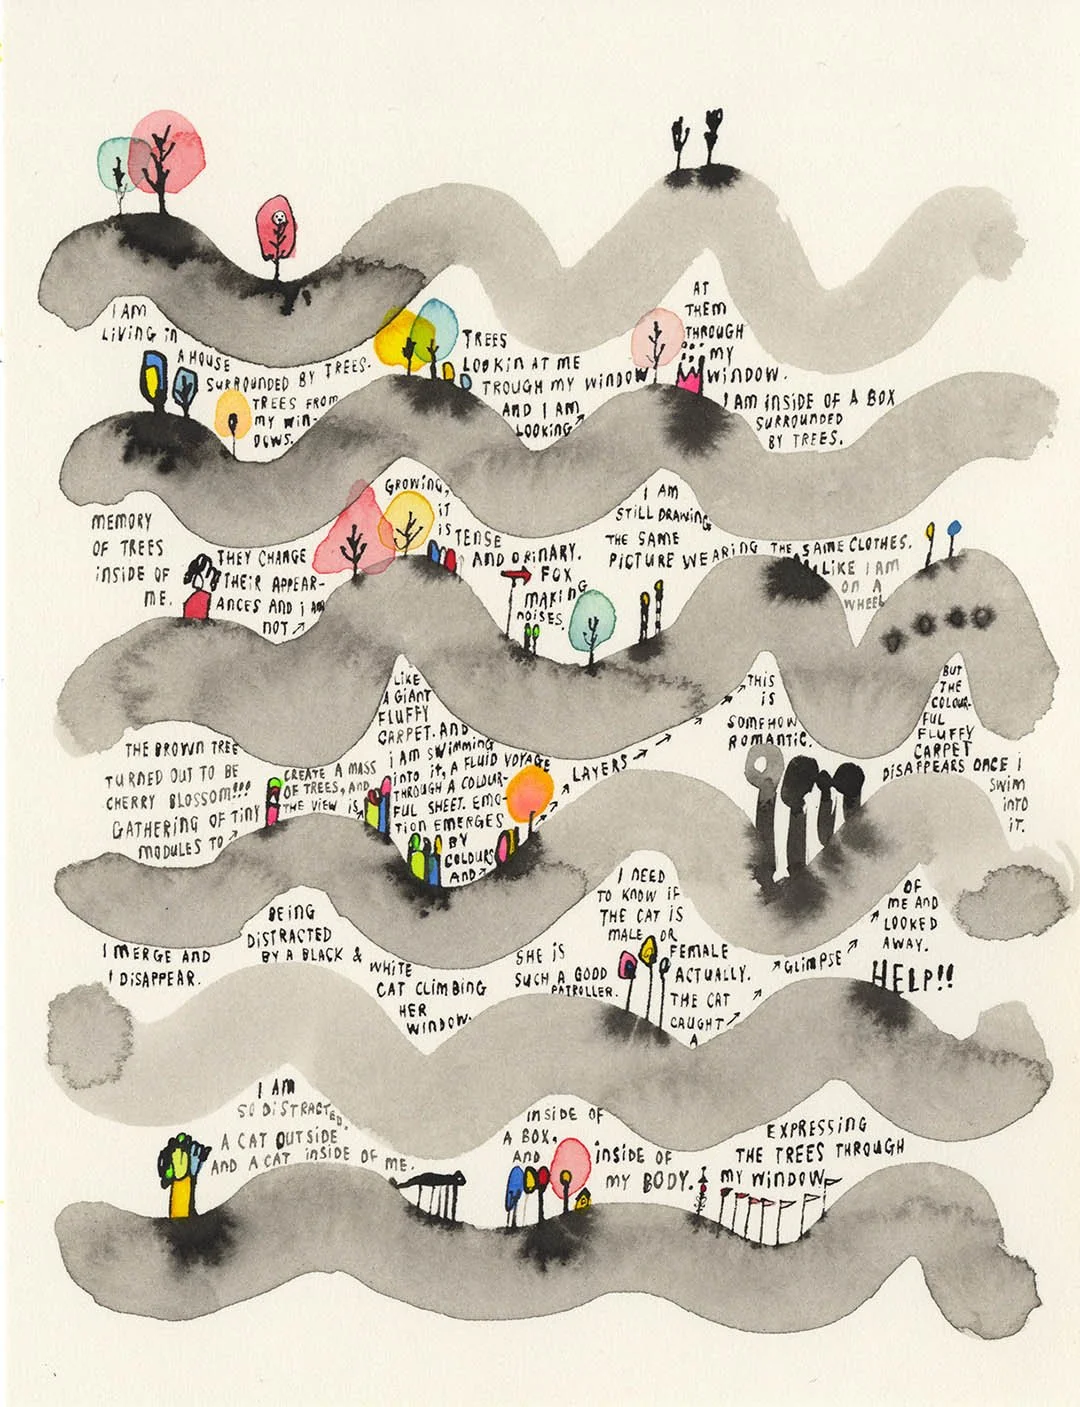 I AM
LIVING IN
A HOUSE
SURROUNDED BY TREES.
TREES FROM
MY WIN-
DOWS.
TREES
LOOKIN AT ME
TROUGH MY WINDOW
AND I AM
LOOKING
AT
THEM
THROUGH
MY
WINDOW.
I AM INSIDE OF A BOX
SURROUNDED
BY TREES.
MEMORY
OF TREES
INSIDE OF
ME.
THEY CHANGE
THEIR APPEAR-
ANCES AND I AM
NOT
GROWING,
IT
IS
TENSE
AND ORINARY.
FOX
MAKING
NOISES.
I AM
STILL DRAWING
THE SAME
PICTURE WEARING THE SAME CLOTHES.
LIKE I AM
ON A
WHEEL
THE BROWN TREE
TURNED OUT TO BE
CHERRY BLOSSOM!!!
GATHERING OF TINY
MODULES TO
CREATE A MASS
OF TREES, AND
THE VIEW IS
LIKE
A GIANT
FLUFFY
CARPET. AND
I AM SWIMMING
INTO IT, A FLUID VOYAGE
THROUGH A COLOUR-
FUL SHEET. EMO-
TION EMERGES
BY
COLOURS
AND
LAYERS
THIS
IS
SOMEHOW
ROMANTIC.
BUT
THE
COLOUR-
FUL
FLUFFY
CARPET
DISAPPEARS ONCE I
SWIM
INTO
IT.
I MERGE AND
I DISAPPEAR.
BEING
DISTRACTED
BY A BLACK &
WHITE
CAT CLIMBING
HER
WINDOW.
SHE IS
SUCH A GOOD
PATROLLER.
I NEED
TO KNOW IF
THE CAT IS
MALE OR
FEMALE
ACTUALLY.
THE CAT
CAUGHT
A
GLIMPSE
OF
ME AND
LOOKED
AWAY.
HELP!!
I AM
SO DISTRACTED.
A CAT OUTSIDE
AND A CAT INSIDE OF ME.
INSIDE OF
A BOX,
AND
INSIDE OF
MY BODY.
EXPRESSING
THE TREES THROUGH
MY WINDOW